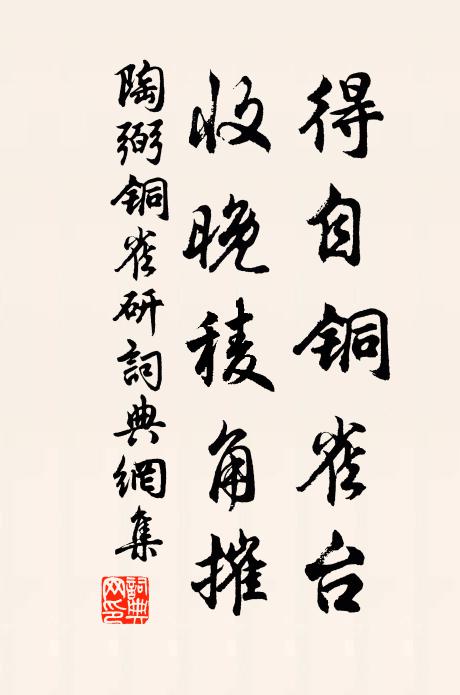 得自铜雀台
收晚稜角摧
陶弼铜雀研詞典網集
詞典网印